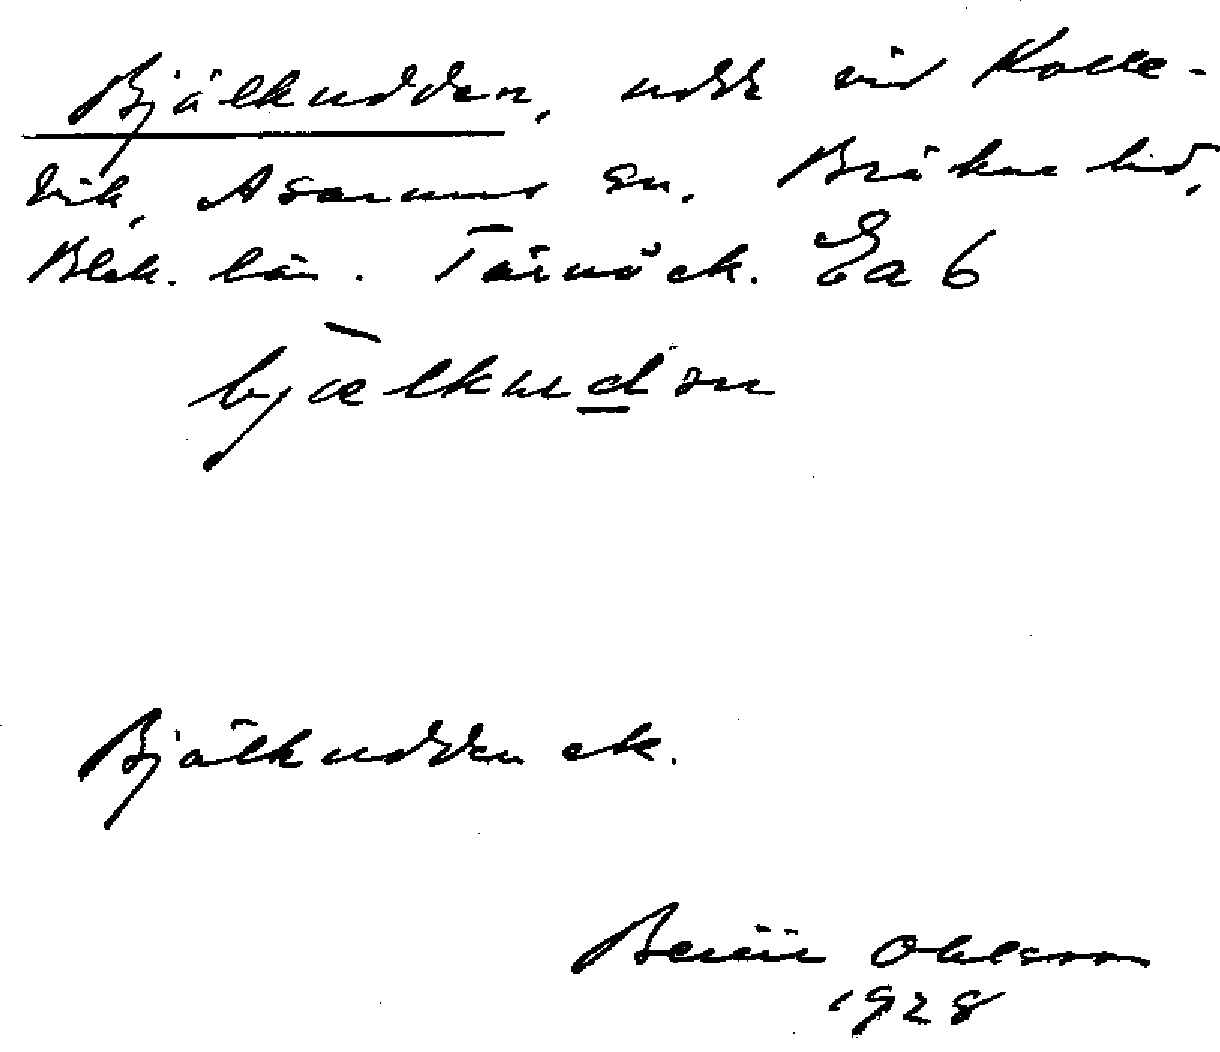 Bjälkudden, udde vid Kolle-
vik, Asarums sn. Bräkne hd,
Blek. län. Tärnö ek. Ea 6
bjælkudən
Bjälkudden ek.
Ohlsson
1928